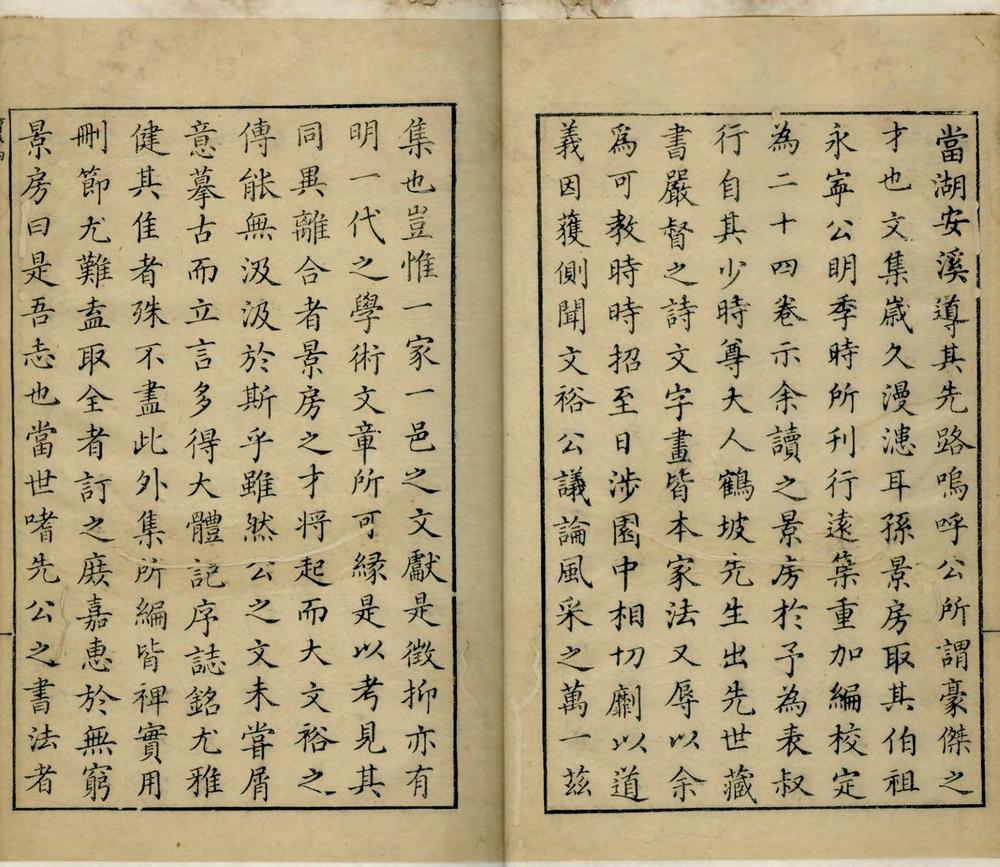 當湖安溪導其先路嗚呼公所謂豪傑之
才也文集歲久漫漶耳孫景房取其伯祖
永寧公明季時所刊行遠築重加編校定
為二十四卷示余讀之景房於予為表叔
行自其少時尊大人鶴坡先生出先世藏
書嚴督之詩文字畫皆本家法又辱以余
爲可教時時招至日涉園中相切劘以道
義因獲側聞文裕公議論風采之萬一茲
集也豈惟一家一邑之文獻是徵抑亦有
明一代之學術文章所可緣是以考見其
同異離合者景房之才將起而大文裕之
傳能無汲汲於斯乎雖然公之文未嘗屑
意摹古而立言多得大體記序誌銘尤雅
健其佳者殊不盡此外集所編皆裨實用
刪節尤難盍取全者訂之庶嘉惠於無窮
景房曰是吾志也當世嗜先公之書法者